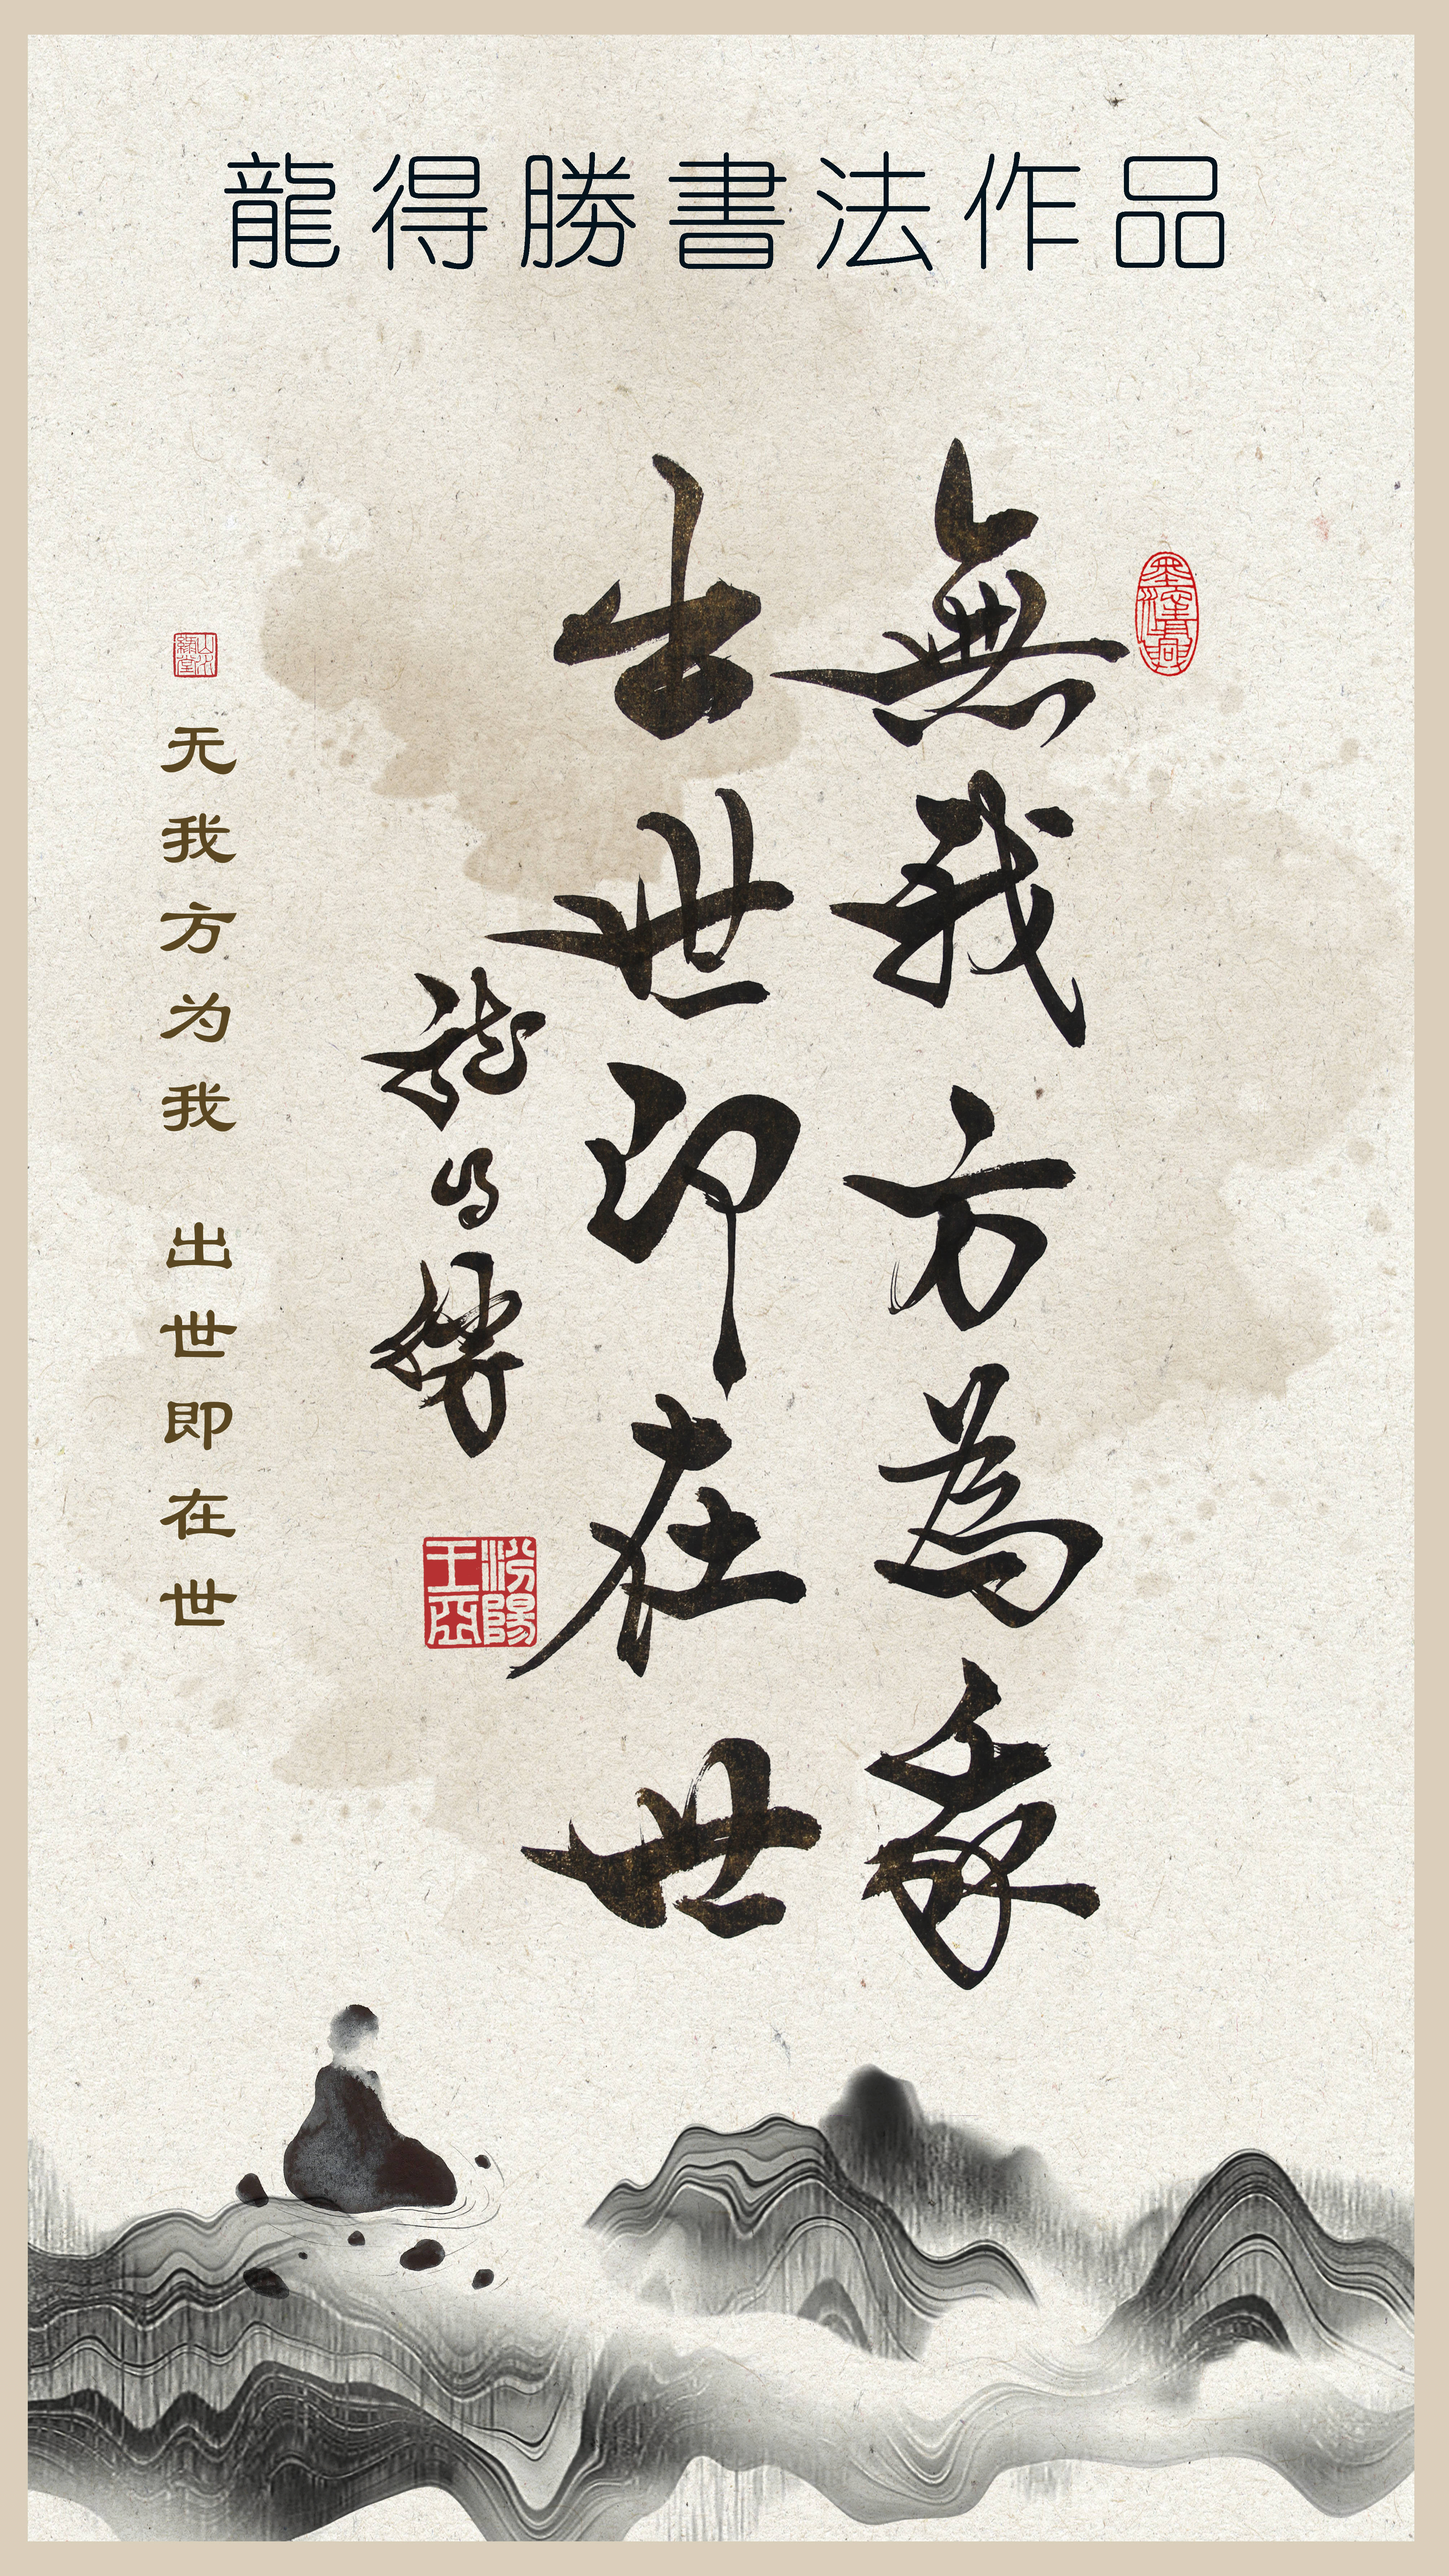 龍得勝書法作品
無我方為我
出世即在世
龍得勝
无我方为我 出世即在世